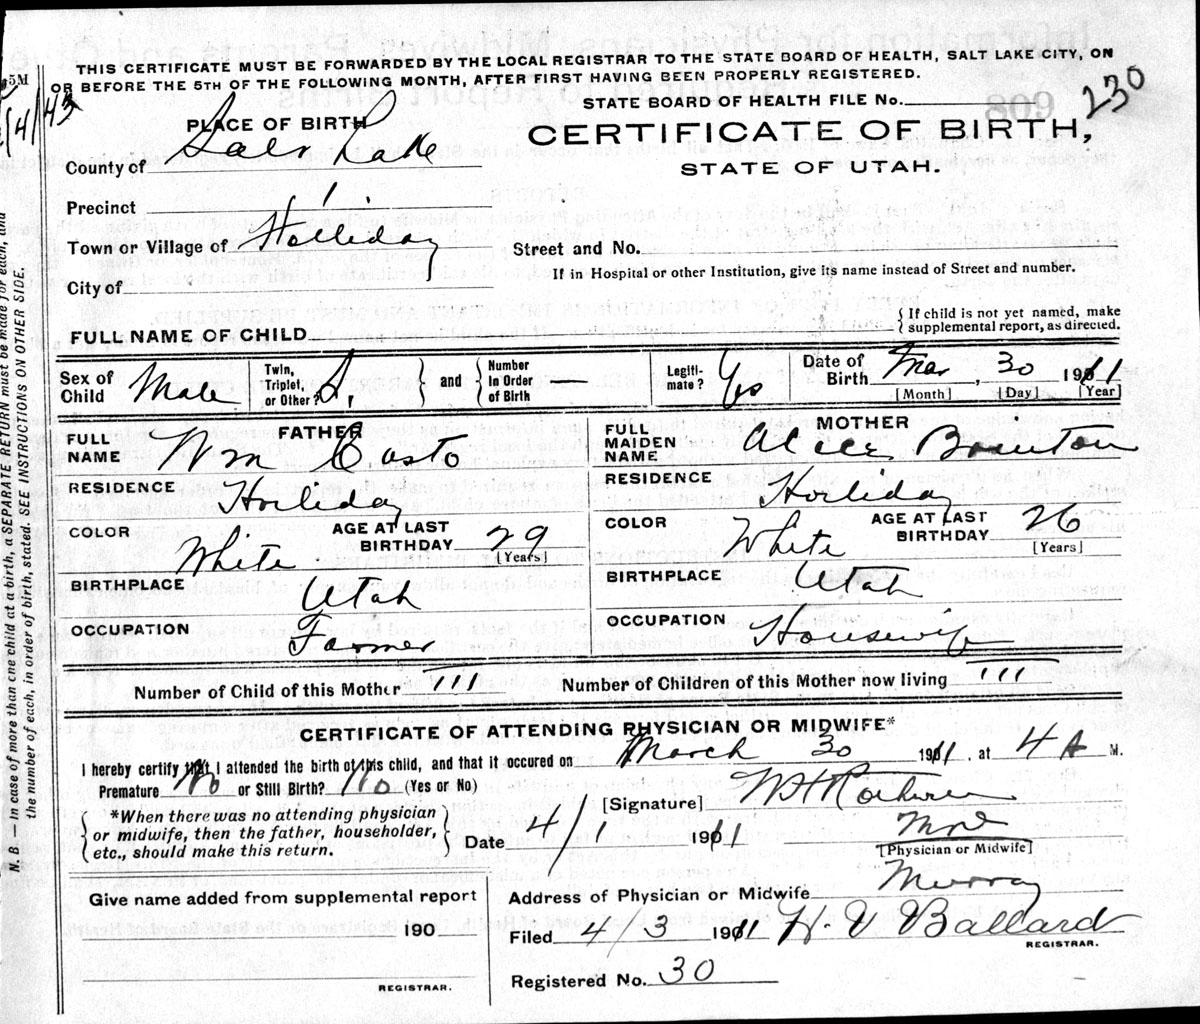 THIS CERTIFICATE MUST BE FORWARDED BY THE LOCAL REGISTRAR TO THE STATE BOARD OF HEALTH, SALT LAKE CITY, ON
OR BEFORE THE 5TH OF THE FOLLOWING MONTH, AFTER FIRST HAVING BEEN PROPERLY REGISTERED.
5M
STATE BOARD OF HEALTH FILE No.
230
809
PLACE OF BIRTH
CERTIFICATE OF BIRTH,
STATE OF UTAH.
County of Salt Lake
Precinct 1
Town or Village of Holliday
Street and No.
If in Hospital or other Institution, give its name instead of Street and number.
City of
FULL NAME OF CHILD
{ If child is not yet named, make
supplemental report, as directed.
Sex of Child Male
Twin, Triplet, or Other? S,
and
Number in Order of Birth
Legiti-mate? Yes
Date of Birth Mar, 30 1911
[Month] [Day] [Year]
FATHER
FULL NAME Wm Casto
MOTHER
FULL MAIDEN NAME Alice Brinton
RESIDENCE Holliday
RESIDENCE Holliday
COLOR White
AGE AT LAST BIRTHDAY 29 [Years]
COLOR White
AGE AT LAST BIRTHDAY 26 [Years]
BIRTHPLACE Utah
BIRTHPLACE Utah
OCCUPATION Farmer
OCCUPATION Housewife
Number of Child of this Mother III
Number of Children of this Mother now living III
CERTIFICATE OF ATTENDING PHYSICIAN OR MIDWIFE*
I hereby certify that I attended the birth of this child, and that it occured on March 30 1911, at 4 A M.
Premature No or Still Birth? No (Yes or No)
[Signature] W H
*When there was no attending physician
or midwife, then the father, householder,
etc., should make this return.
Date 4/1 1911
[Physician or Midwife]
Give name added from supplemental report
190
REGISTRAR.
Address of Physician or Midwife Murray
Filed 4/3 1911 H. V Ballard
REGISTRAR.
Registered No. 30
N. B. — In case of more than one child at a birth, a SEPARATE RETURN must be made for each, and
the number of each, in order of birth, stated. SEE INSTRUCTIONS ON OTHER SIDE.